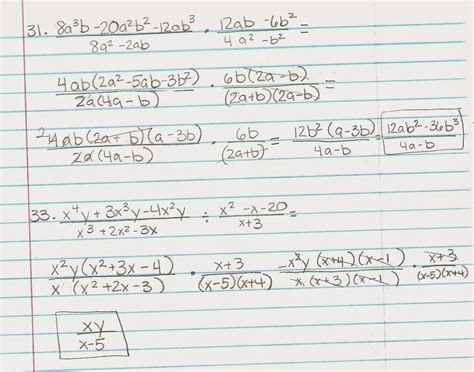 31. 8a³b - 20a²b² - 12ab³ / 8a² - 2ab · 12ab - 6b² / 4a² - b² =
4ab(2a² - 5ab - 3b²) / 2a(4a - b) · 6b(2a - b) / (2a+b)(2a-b) =
2 4ab(2a + b)(a - 3b) / 2a(4a - b) · 6b / (2a+b) = 12b²(a - 3b) / 4a - b = 12ab² - 36b³ / 4a - b
33. x⁴y + 3x³y - 4x²y / x³ + 2x² - 3x ÷ x² - x - 20 / x + 3 =
x²y(x² + 3x - 4) / x(x² + 2x - 3) · x+3 / (x-5)(x+4) x²y(x+4)(x-1) / x(x+3)(x-1) · x+3 / (x-5)(x+4)
xy / x-5